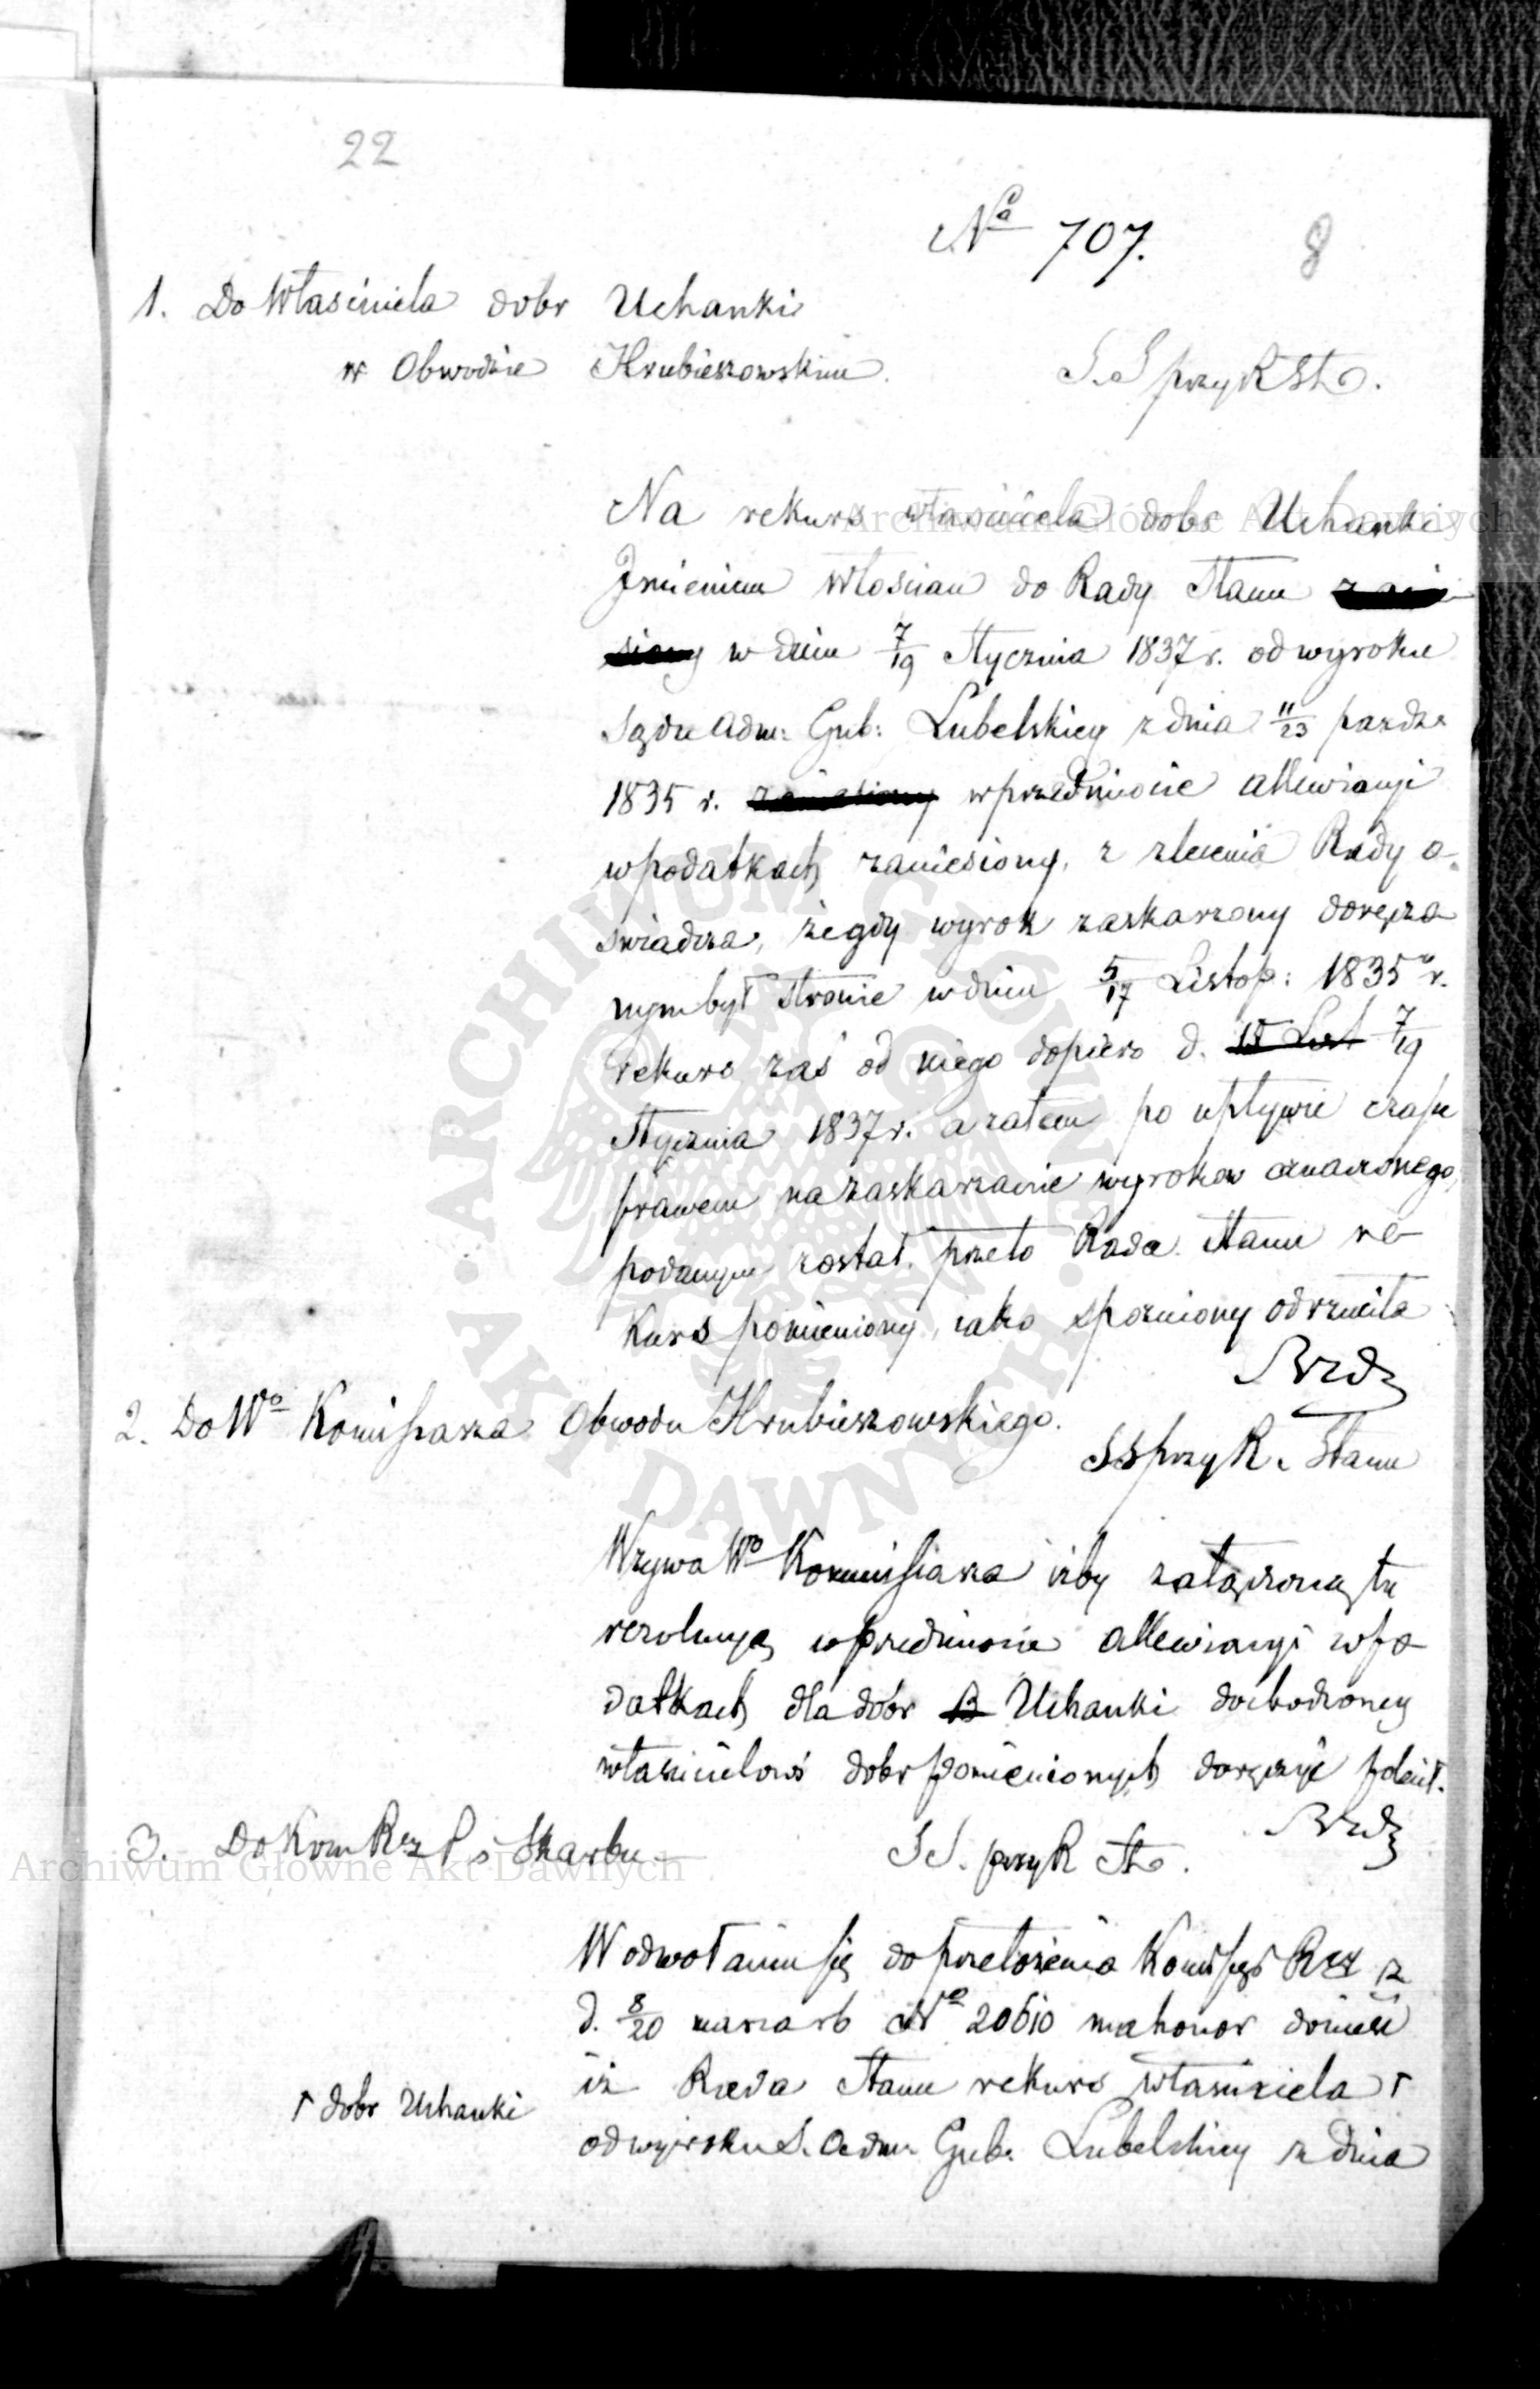 22
No 707.
8
1. Do Właściciela dobr Uchanki
w Obwodzie Hrubieszowskim.
S. S przy R St.
Na rekurs właściciela dobr Uchanki
Imieniem Włościan do Rady Stanu zanie-
siony w dniu 7/19 Stycznia 1837 r. od wyroku
Sądu Adm: Gub: Lubelskiey z dnia 11/23 pazdz.
1835 r. zaniesiony w przedmiocie allewiacyi
w podatkach zaniesiony, z zlecenia Rady o-
świadcza, że gdy wyrok zaskarzony doręczo
nym był stronie w dniu 5/17 Listop: 1835 r.
rekurs zaś od niego dopiero d. 15 List 7/19
Stycznia 1837 r. a zatem po upływie czasu
prawem na zaskarzanie wyrokow oznaczonego,
podanym został. przeto Rada Stanu re-
kurs pomieniony, iako spozniony odrzuciła
2. Do Wo Kommissarza Obwodu Hrubieszowskiego.
SS przy R. Stanu
Wzywa Wo Kommissarza iżby załączoną tu
rezolucyą w przedmiocie allewiacyi w po
datkach dla dobr B Uchanki dochodzoney
właścicielowi dobr pomienionych doręczyć polecił.
3. Do Kom Rz P i Skarbu
S S. przy R St.
W odwołaniu się do przełożenia Kommissyi Rz z
d. 8/20 marca rb No 20610 ma honor donieść
iż Rada Stanu rekurs właściciela Γ
Γ dobr Uchanki
od wyroku S. Adm. Gub. Lubelskiey z dnia
Archiwum Główne Akt Dawnych
Archiwum Główne Akt Dawnych
ARCHIWUM GŁÓWNE · AKT DAWNYCH ·